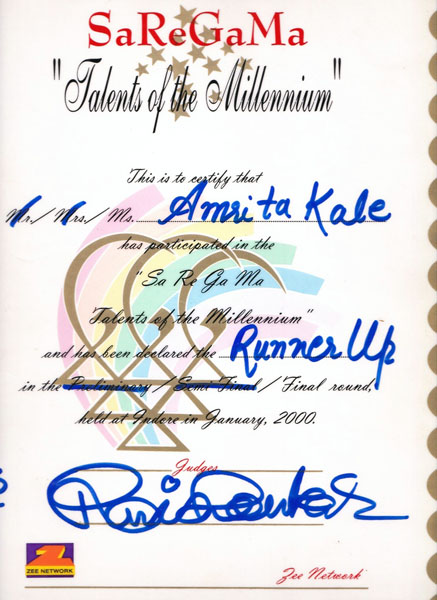 SaReGaMa
"Talents of the Millennium"
This is to certify that
Mr./ Mrs./ Ms. Amrita Kale
has participated in the
"Sa Re Ga Ma
Talents of the Millennium"
and has been declared the Runner Up
in the Preliminary / Semi Final / Final round,
held at Indore in January, 2000.
Judges
ZEE NETWORK
Zee Network